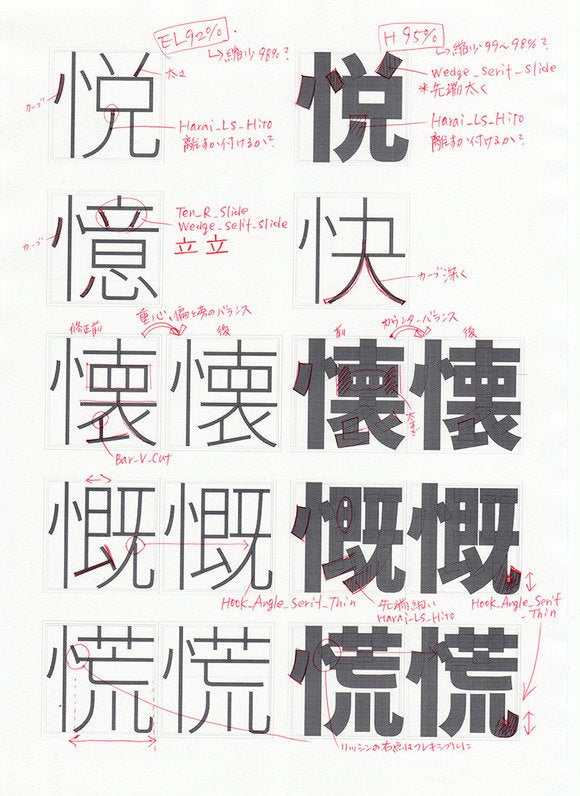 EL92%
↳縮少98%?
H 95%
↳縮少99~98%?
悦
太さ
カーブ
Harai_LS_Hito
離すか付けるか?
悦
Wedge_Serif_Slide
*先端太く
Harai_LS_Hito
離すか付けるか?
憶
カーブ
Ten_R_Slide
Wedge_Serif_Slide
立 立
快
カーブ深く
重心、偏と旁のバランス
修正前
後
懐 懐
Bar_V_Cut
カウンターバランス
前
後
懐 懐
慨 慨
Hook_Angle_Serif_Thin
慨 慨
先端細い
Harai_LS_Hito
Hook_Angle_Serif
_Thin
慌 慌
慌 慌
リッシンの右点はフレキシブルに